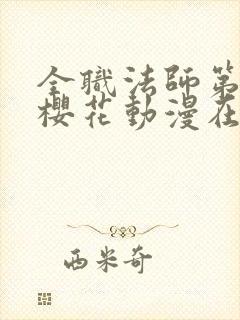 全職法師第
櫻花動漫在
西米奇